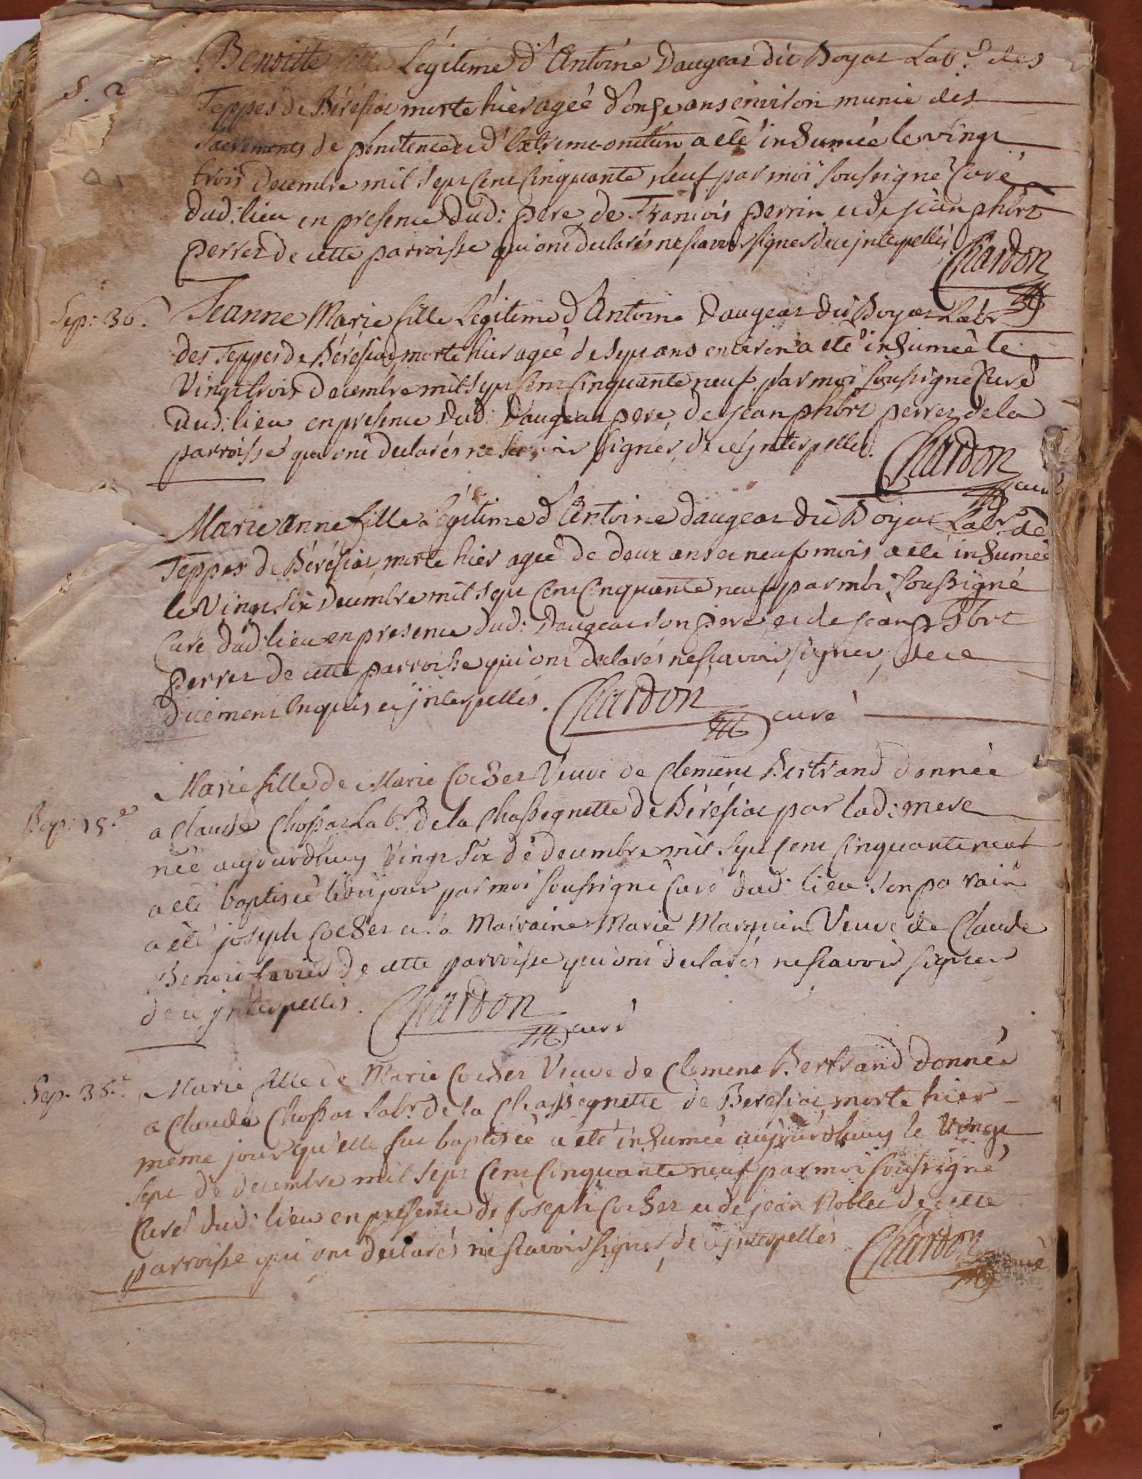 Benoitte fille Légitime d'Antoine Daujeat dit Boyat Lab.r des
S. 2
Teppes de Béréziat morte hier ageé d'onze ans environ munie des
sacrements de penitence et d'extreme-onction a été inhumeé le vingt
trois decembre mil sept cent cinquante neuf par moi soussigné Curé
dud: lieu en presence dud: pere, de Francois perrin et de jean phbrt
perret de cette parroisse qui ont declarés ne scavoir signer de ce jnterpellés
Chardon
Sep: 36.e Jeanne Marie fille Légitime d'Antoine Daujeat dit Boyat Labr
des Teppes de Béréziat morte hier ageé de sept ans environ a eté inhumeé le
Vingt trois decembre mil sept cent cinquante neuf par moi soussigné Curé
dud: lieu en presence dud: Daujeat pere, de jean phbrt perret de la
parroisse qui ont declarés ne scavoir signer, de ce jnterpellés.
Chardon curé
Marie Anne fille légitime d'Antoine daujeat dit Boyat Labr. de
Teppes de Béréziat, morte hier ageé de deux ans et neuf mois a eté inhumeé
le Vingt six decembre mil sept cent cinquante neuf par moi soussigné
Curé dud: lieu en presence dud: Daujeat son pere et de jean phbrt
perret de cette parroisse qui ont declarés ne scavoir signer, de ce
duement enquis et jnterpellés. Chardon curé
Marie fille de Marie Cochet Veuve de Clement Bertrand donneé
Bap: 15.e a Claude Chossat Labr. de la Chassagnette de Béréziat par lad: mere
neé aujourdhuy vingt six de decembre mil sept cent cinquante neuf
a eté baptiseé led: jour par moi soussigné curé dud: lieu: son parain
a eté joseph Cochet et la Maraine Marie Marguin Veuve de Claude
Benoit favier de cette parroisse qui ont declarés ne scavoir signer
de ce jnterpellés. Chardon curé
Sep. 35.e Marie fille de Marie Cochet Veuve de Clement Bertrand donneé
a Claude Chossat Labr. de la Chassagnette de Béréziat, morte hier
même jour qu'elle fut baptiseé a été inhumeé aujourdhuy le Vingt
sept de decembre mil sept cent cinquante neuf par moi soussigné
Curé dud: lieu en presence de joseph Cochet et de jean Noblet de cette
parroisse qui ont declarés ne scavoir signer, de ce jnterpellés Chardon curé